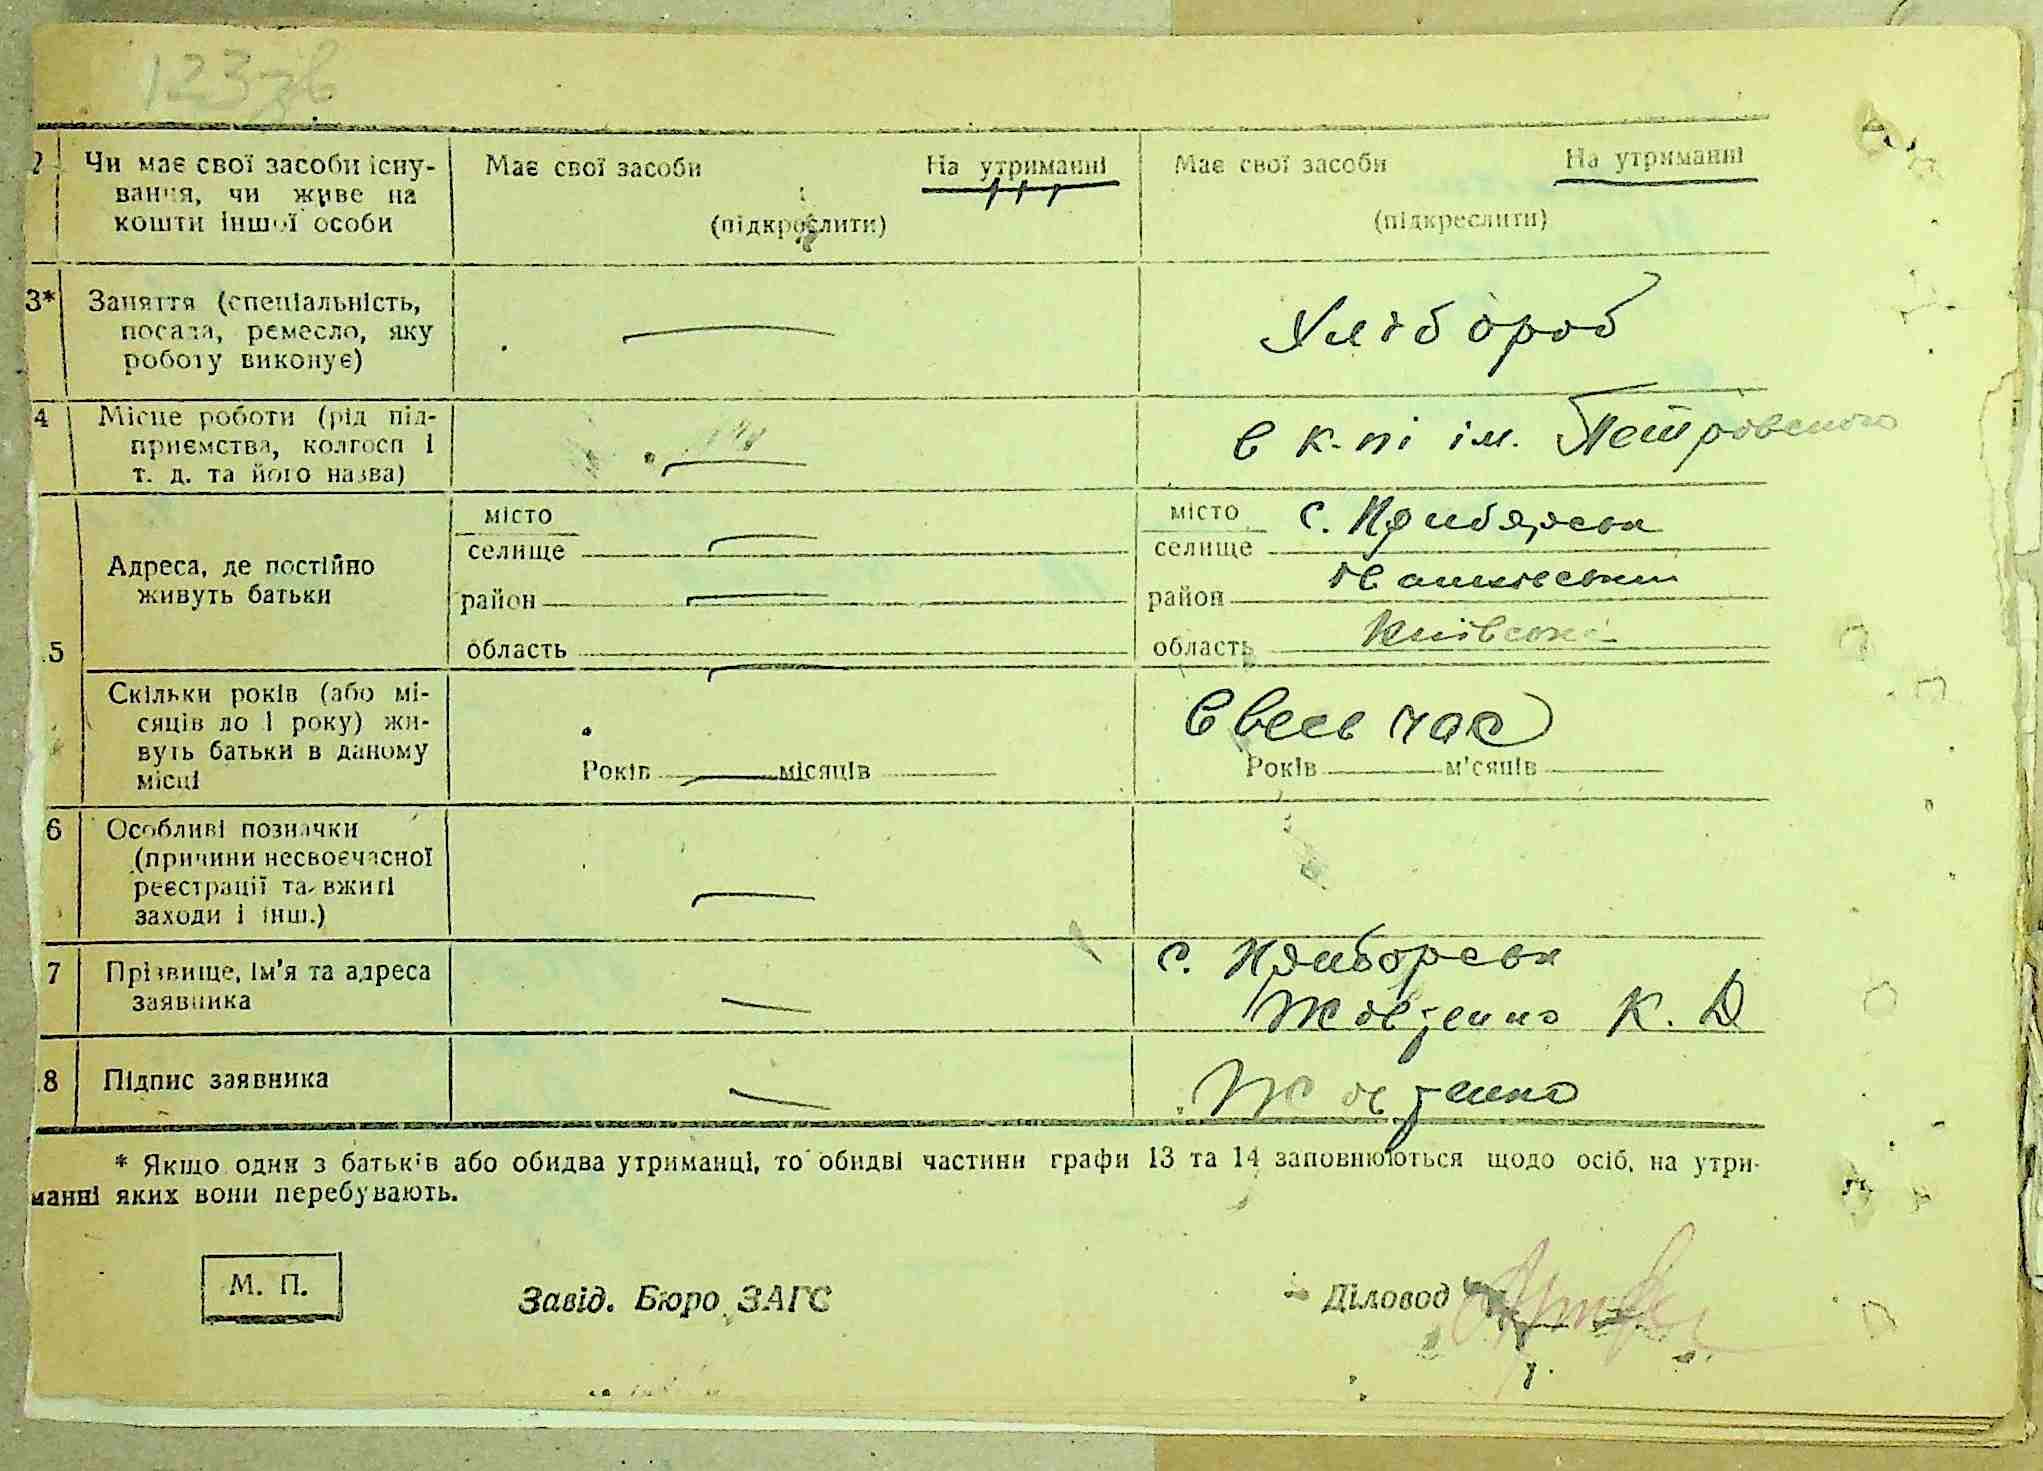 123зв
2 Чи має свої засоби існу-
вання, чи живе на
кошти іншої особи
Має свої засоби На утриманні
(підкреслити)
Має свої засоби На утриманні
(підкреслити)
3* Заняття (спеціальність,
посада, ремесло, яку
роботу виконує)
Хлібороб
4 Місце роботи (рід під-
приємства, колгосп і
т. д. та його назва)
в к-пі ім. Петровського
5 Адреса, де постійно
живуть батьки
місто
селище
район
область
місто с. Прибірськ
селище
район Іванківський
область Київська
Скільки років (або мі-
сяців до 1 року) жи-
вуть батьки в даному
місці
Років місяців
Ввесь час
Років місяців
6 Особливі позначки
(причини несвоєчасної
реєстрації та вжиті
заходи і інш.)
7 Прізвище, ім'я та адреса
заявника
с. Приборськ
К. Д
8 Підпис заявника
* Якщо один з батьків або обидва утриманці, то обидві частини графи 13 та 14 заповнюються щодо осіб, на утри-
манні яких вони перебувають.
М. П.
Завід. Бюро ЗАГС
Діловод